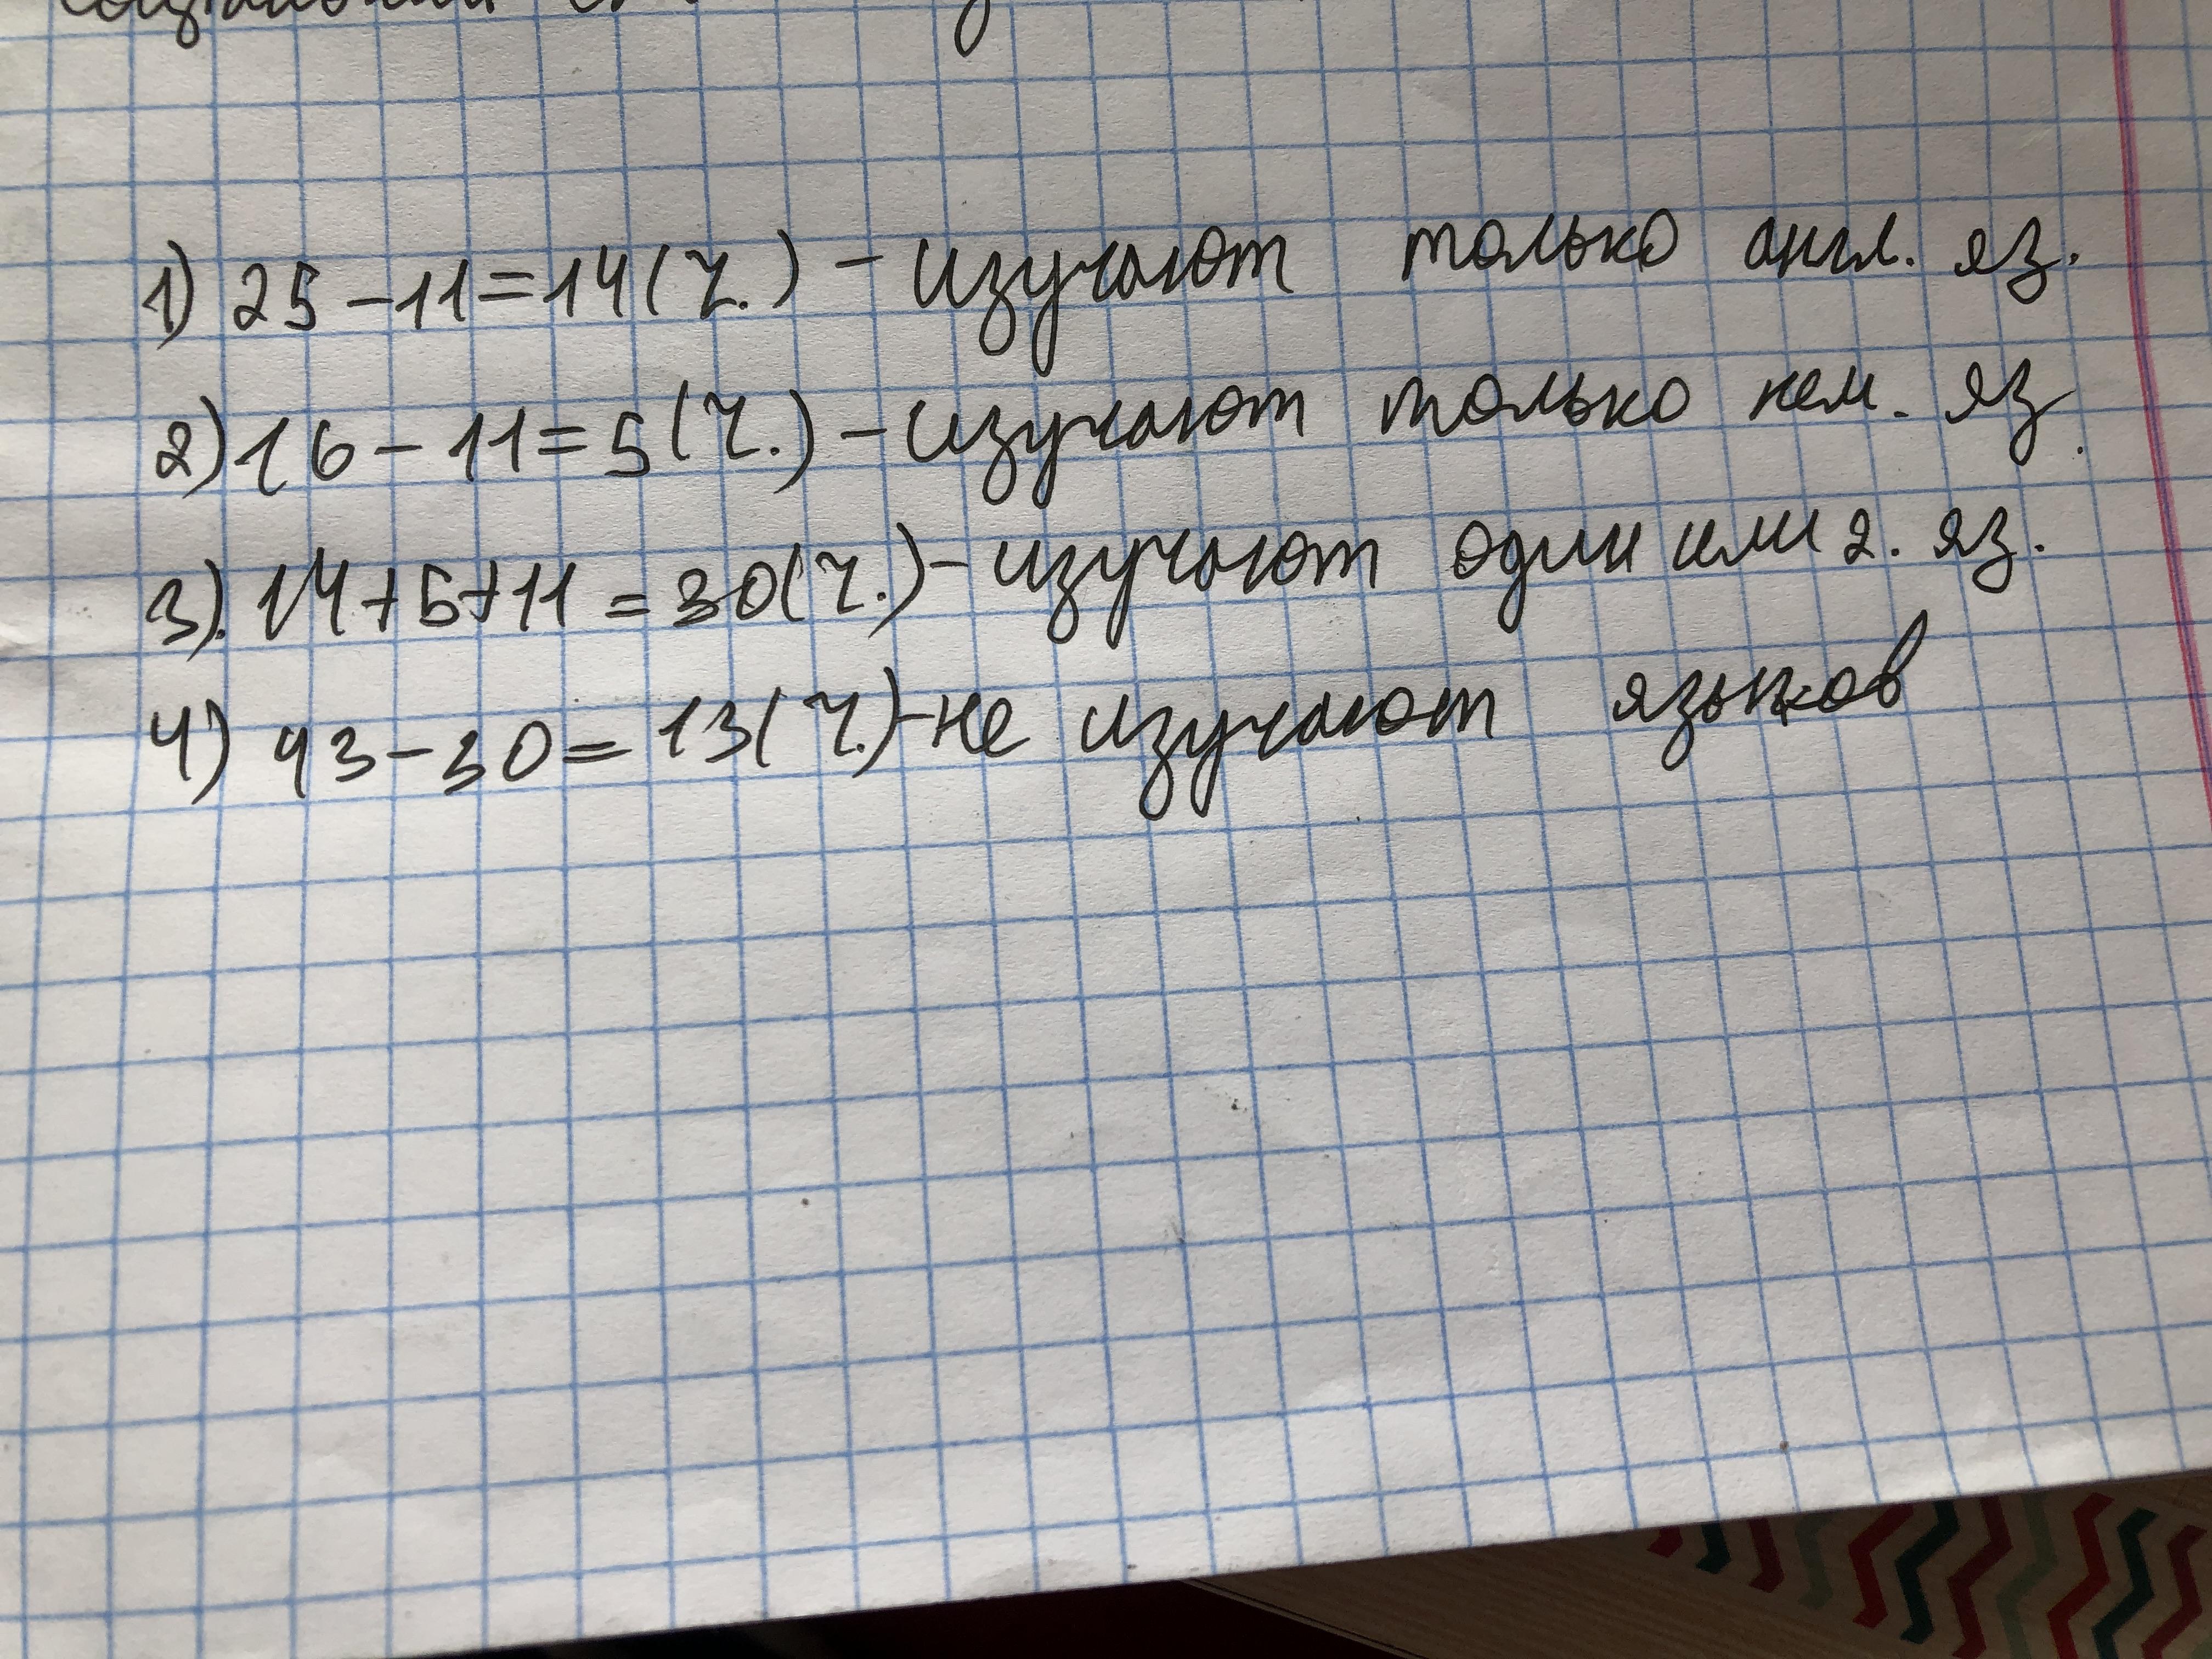 1) 25-11=14(ч.) - изучают только англ. яз.
2) 16-11=5(ч.) - изучают только нем. яз.
3). 14+5+11=30(ч.) - изучают один или 2. яз.
4) 43-30=13(ч.) - не изучают языков